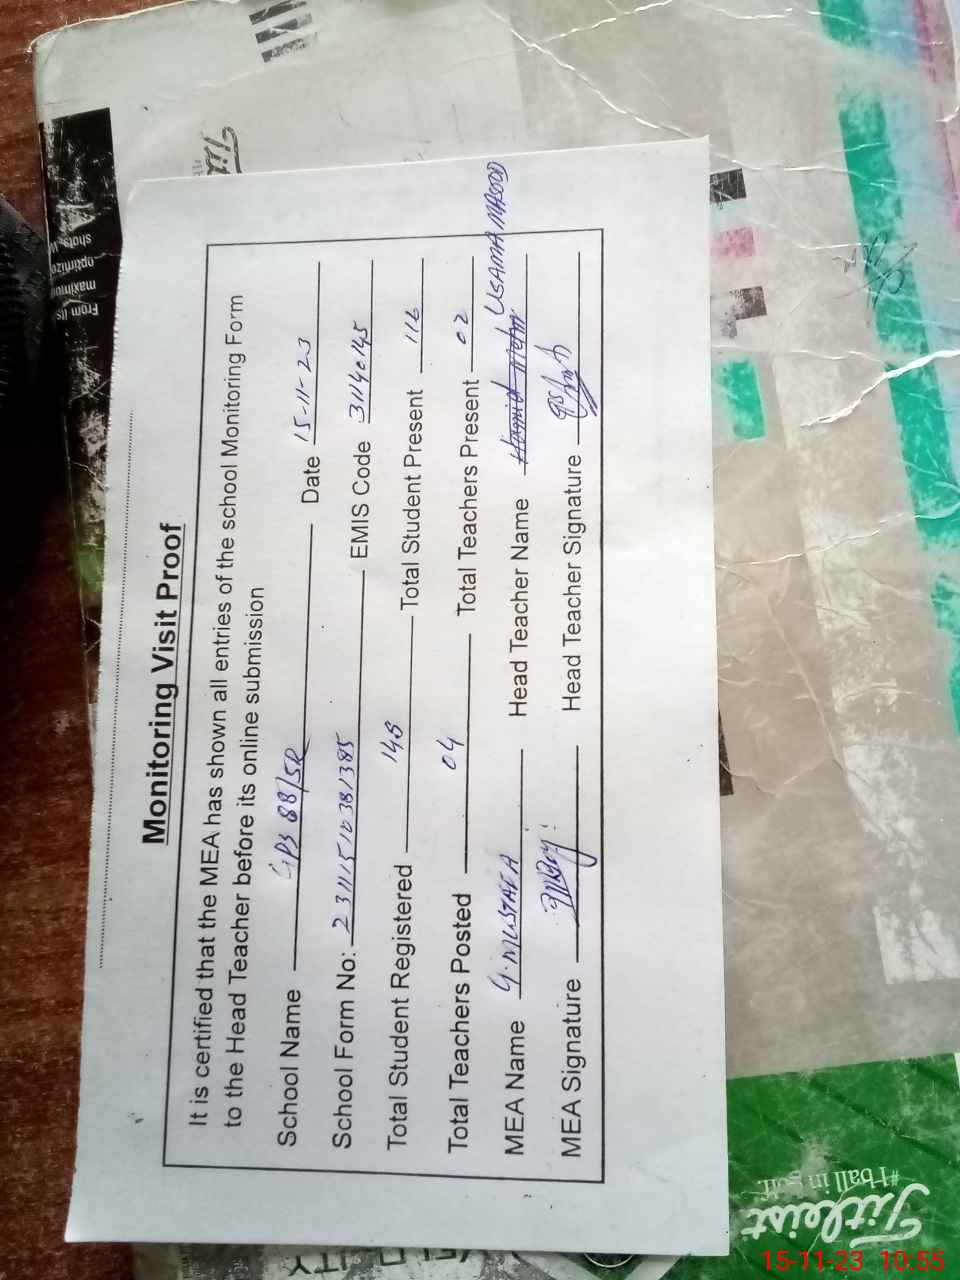 Monitoring Visit Proof
It is certified that the MEA has shown all entries of the school Monitoring Form
to the Head Teacher before its online submission
School Name GPS 88/5R Date 15-11-23
School Form No: 2311151038/385 EMIS Code 31140145
Total Student Registered 148 Total Student Present 116
Total Teachers Posted 04 Total Teachers Present 02
MEA Name G. MUSTAFA Head Teacher Name USAMA MASOOD
MEA Signature Head Teacher Signature
From its
maximum
optimize
shots. W
Titleist
#1 ball in golf.
VELOCITY
15-11-23 10:55